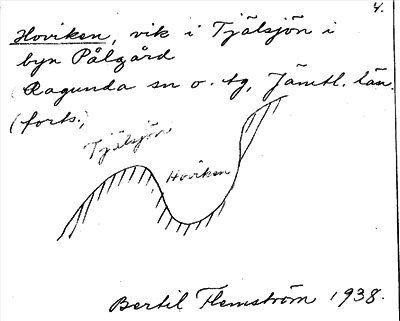 4.
Hoviken, vik i Tjälsjön i
byn Pålgård
Ragunda sn o. tg, Jämtl. län.
(forts.)
Tjälsjön
Hoviken
Bertil Flemström 1938.